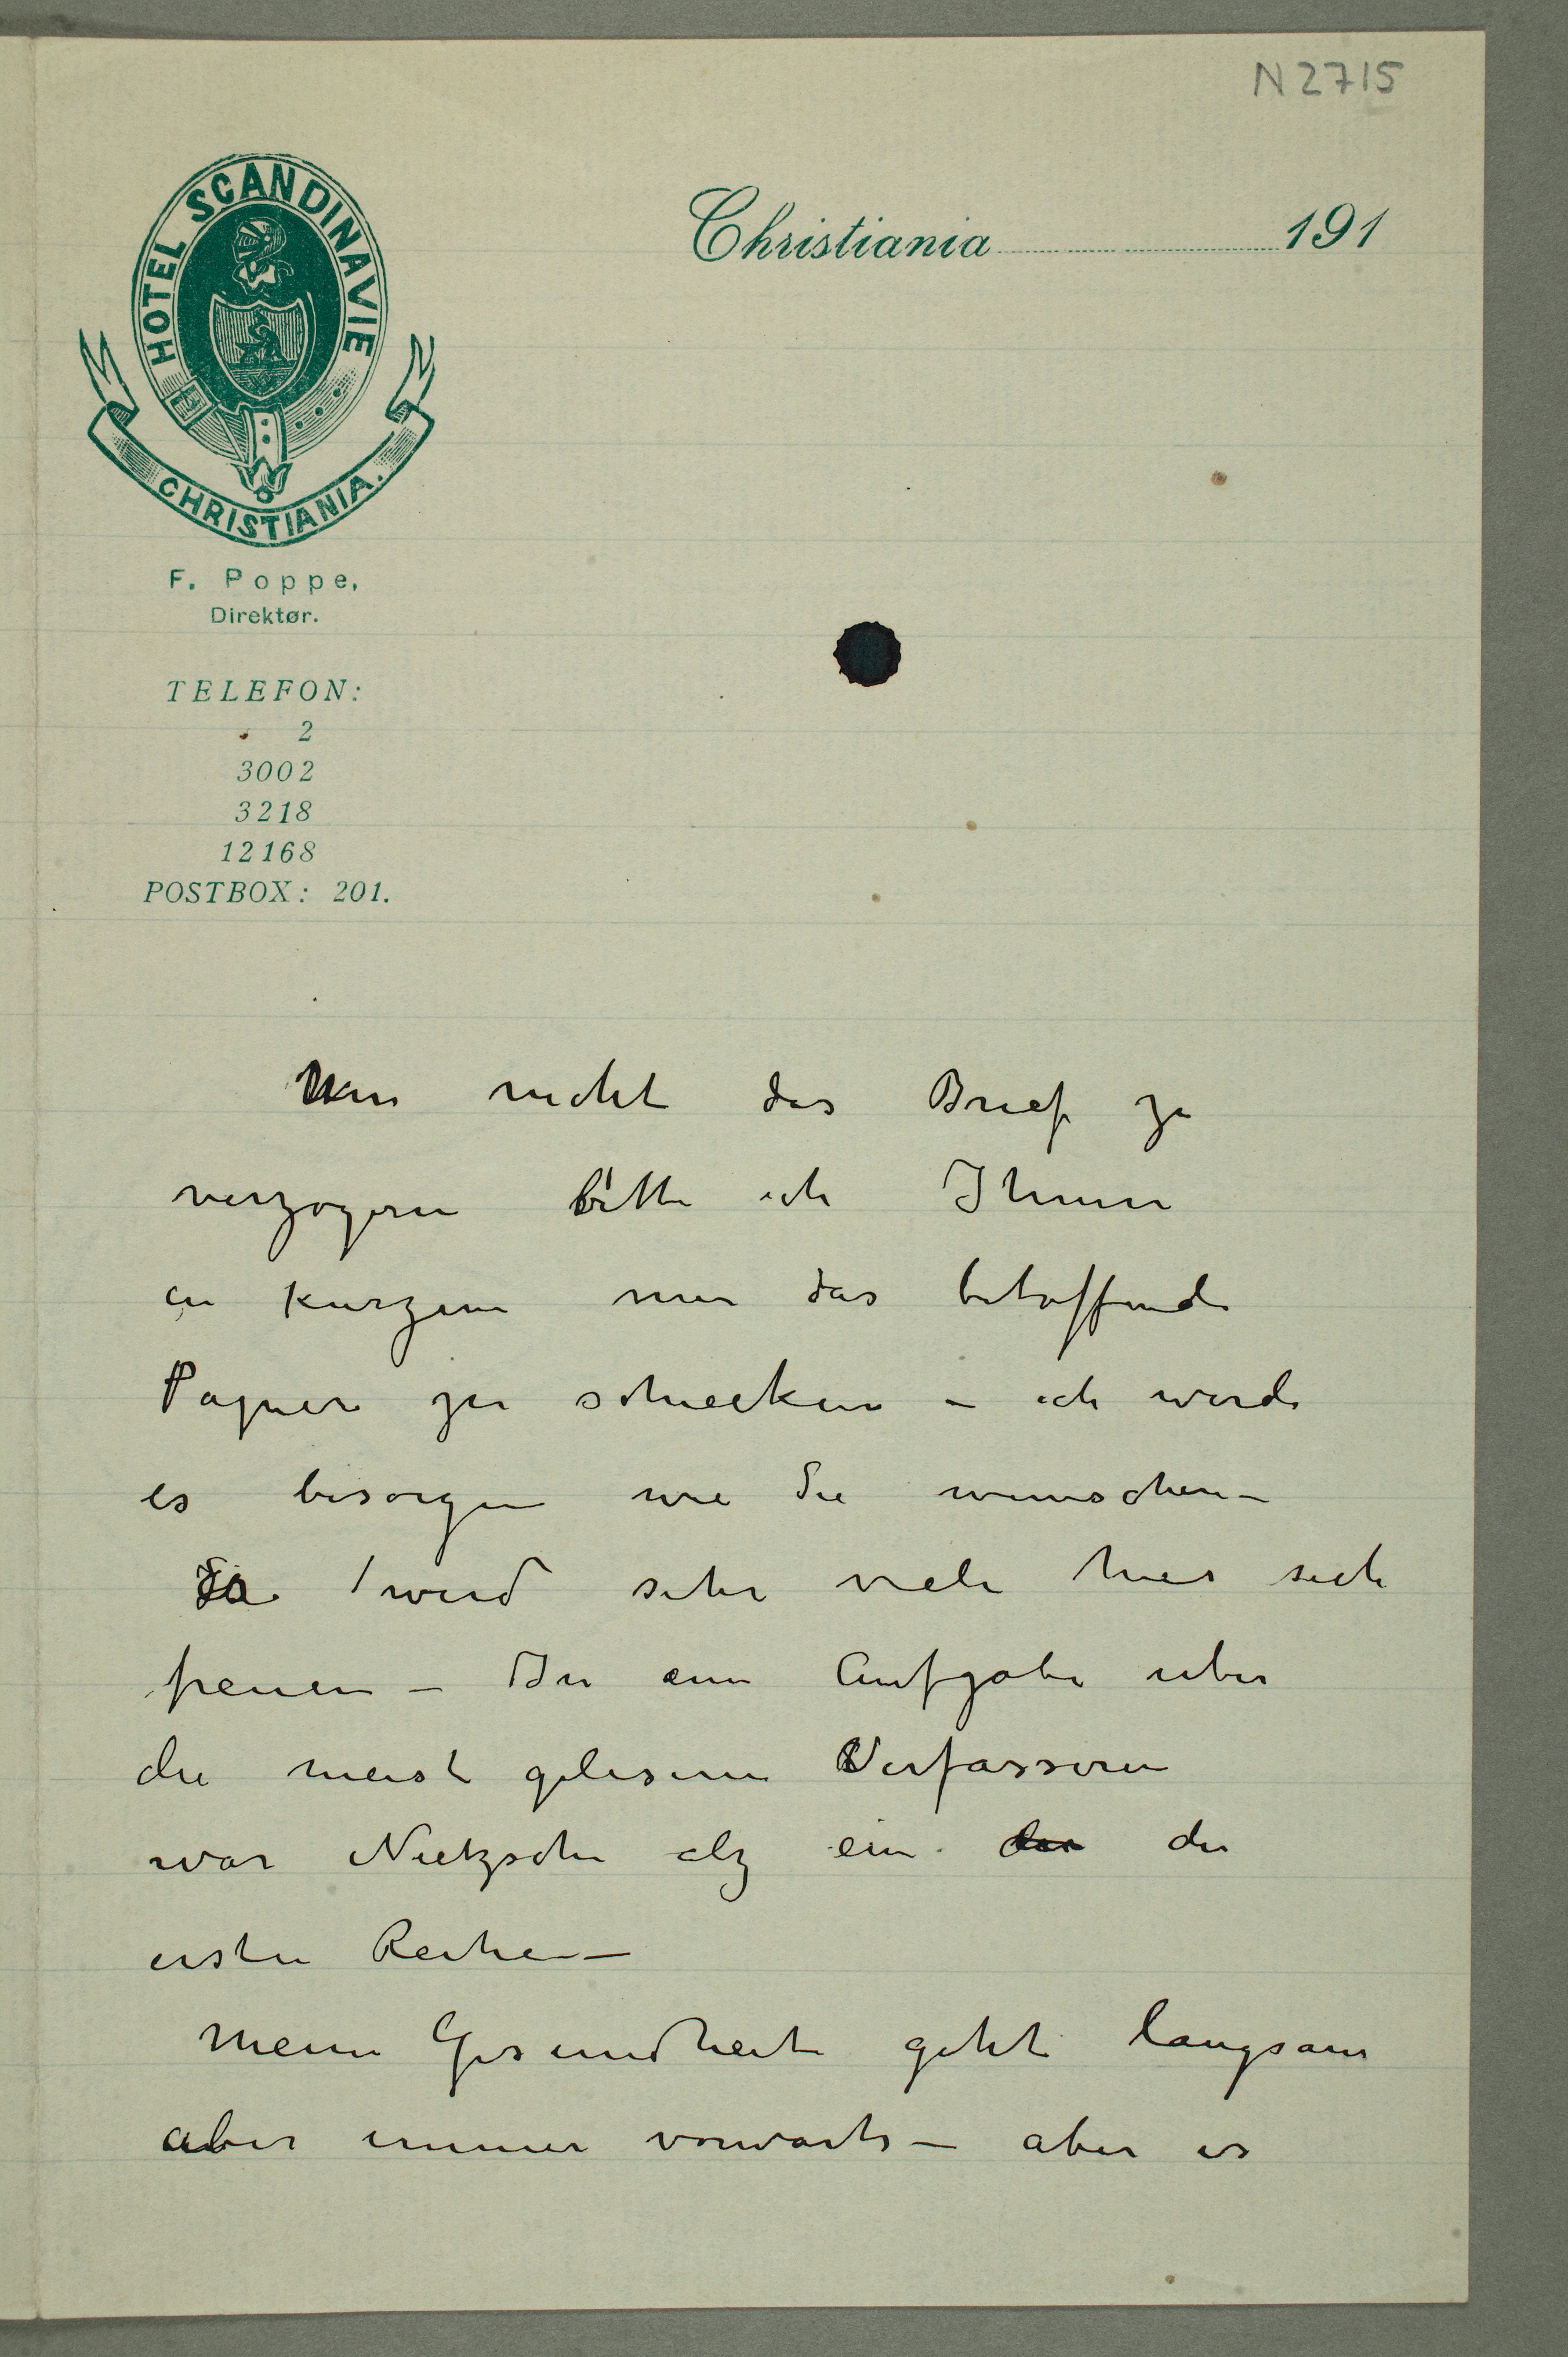 N 2715
HOTEL SCANDINAVIE
CHRISTIANIA.
Christiania 191
F. Poppe,
Direktør.
TELEFON:
2
3002
3218
12168
POSTBOX: 201.
Um nicht das Brief zu
verzögern bitte ich Ihnen
in kurzem mir das betoffende
Papier zu schieken – ich werde
es besorgen wie Sie wunschen –
Es wird sehr viele hier sich
freuen – In ein Aufgabe uber
die meist gelesenen Verfasseren
war Nietzsche alz ein der
ersten Reihe –
Meine Gesundheit geht langsam
aber immer vorwärts – aber es